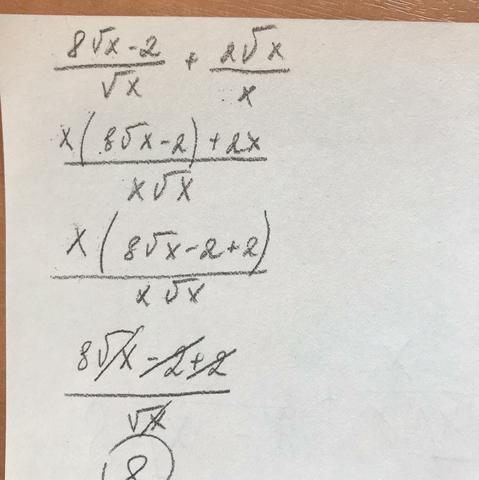 (8√x-2)/√x + (2√x)/x
(x(8√x-2)+2x)/(x√x)
(x(8√x-2+2))/(x√x)
(8√x-2+2)/√x
8